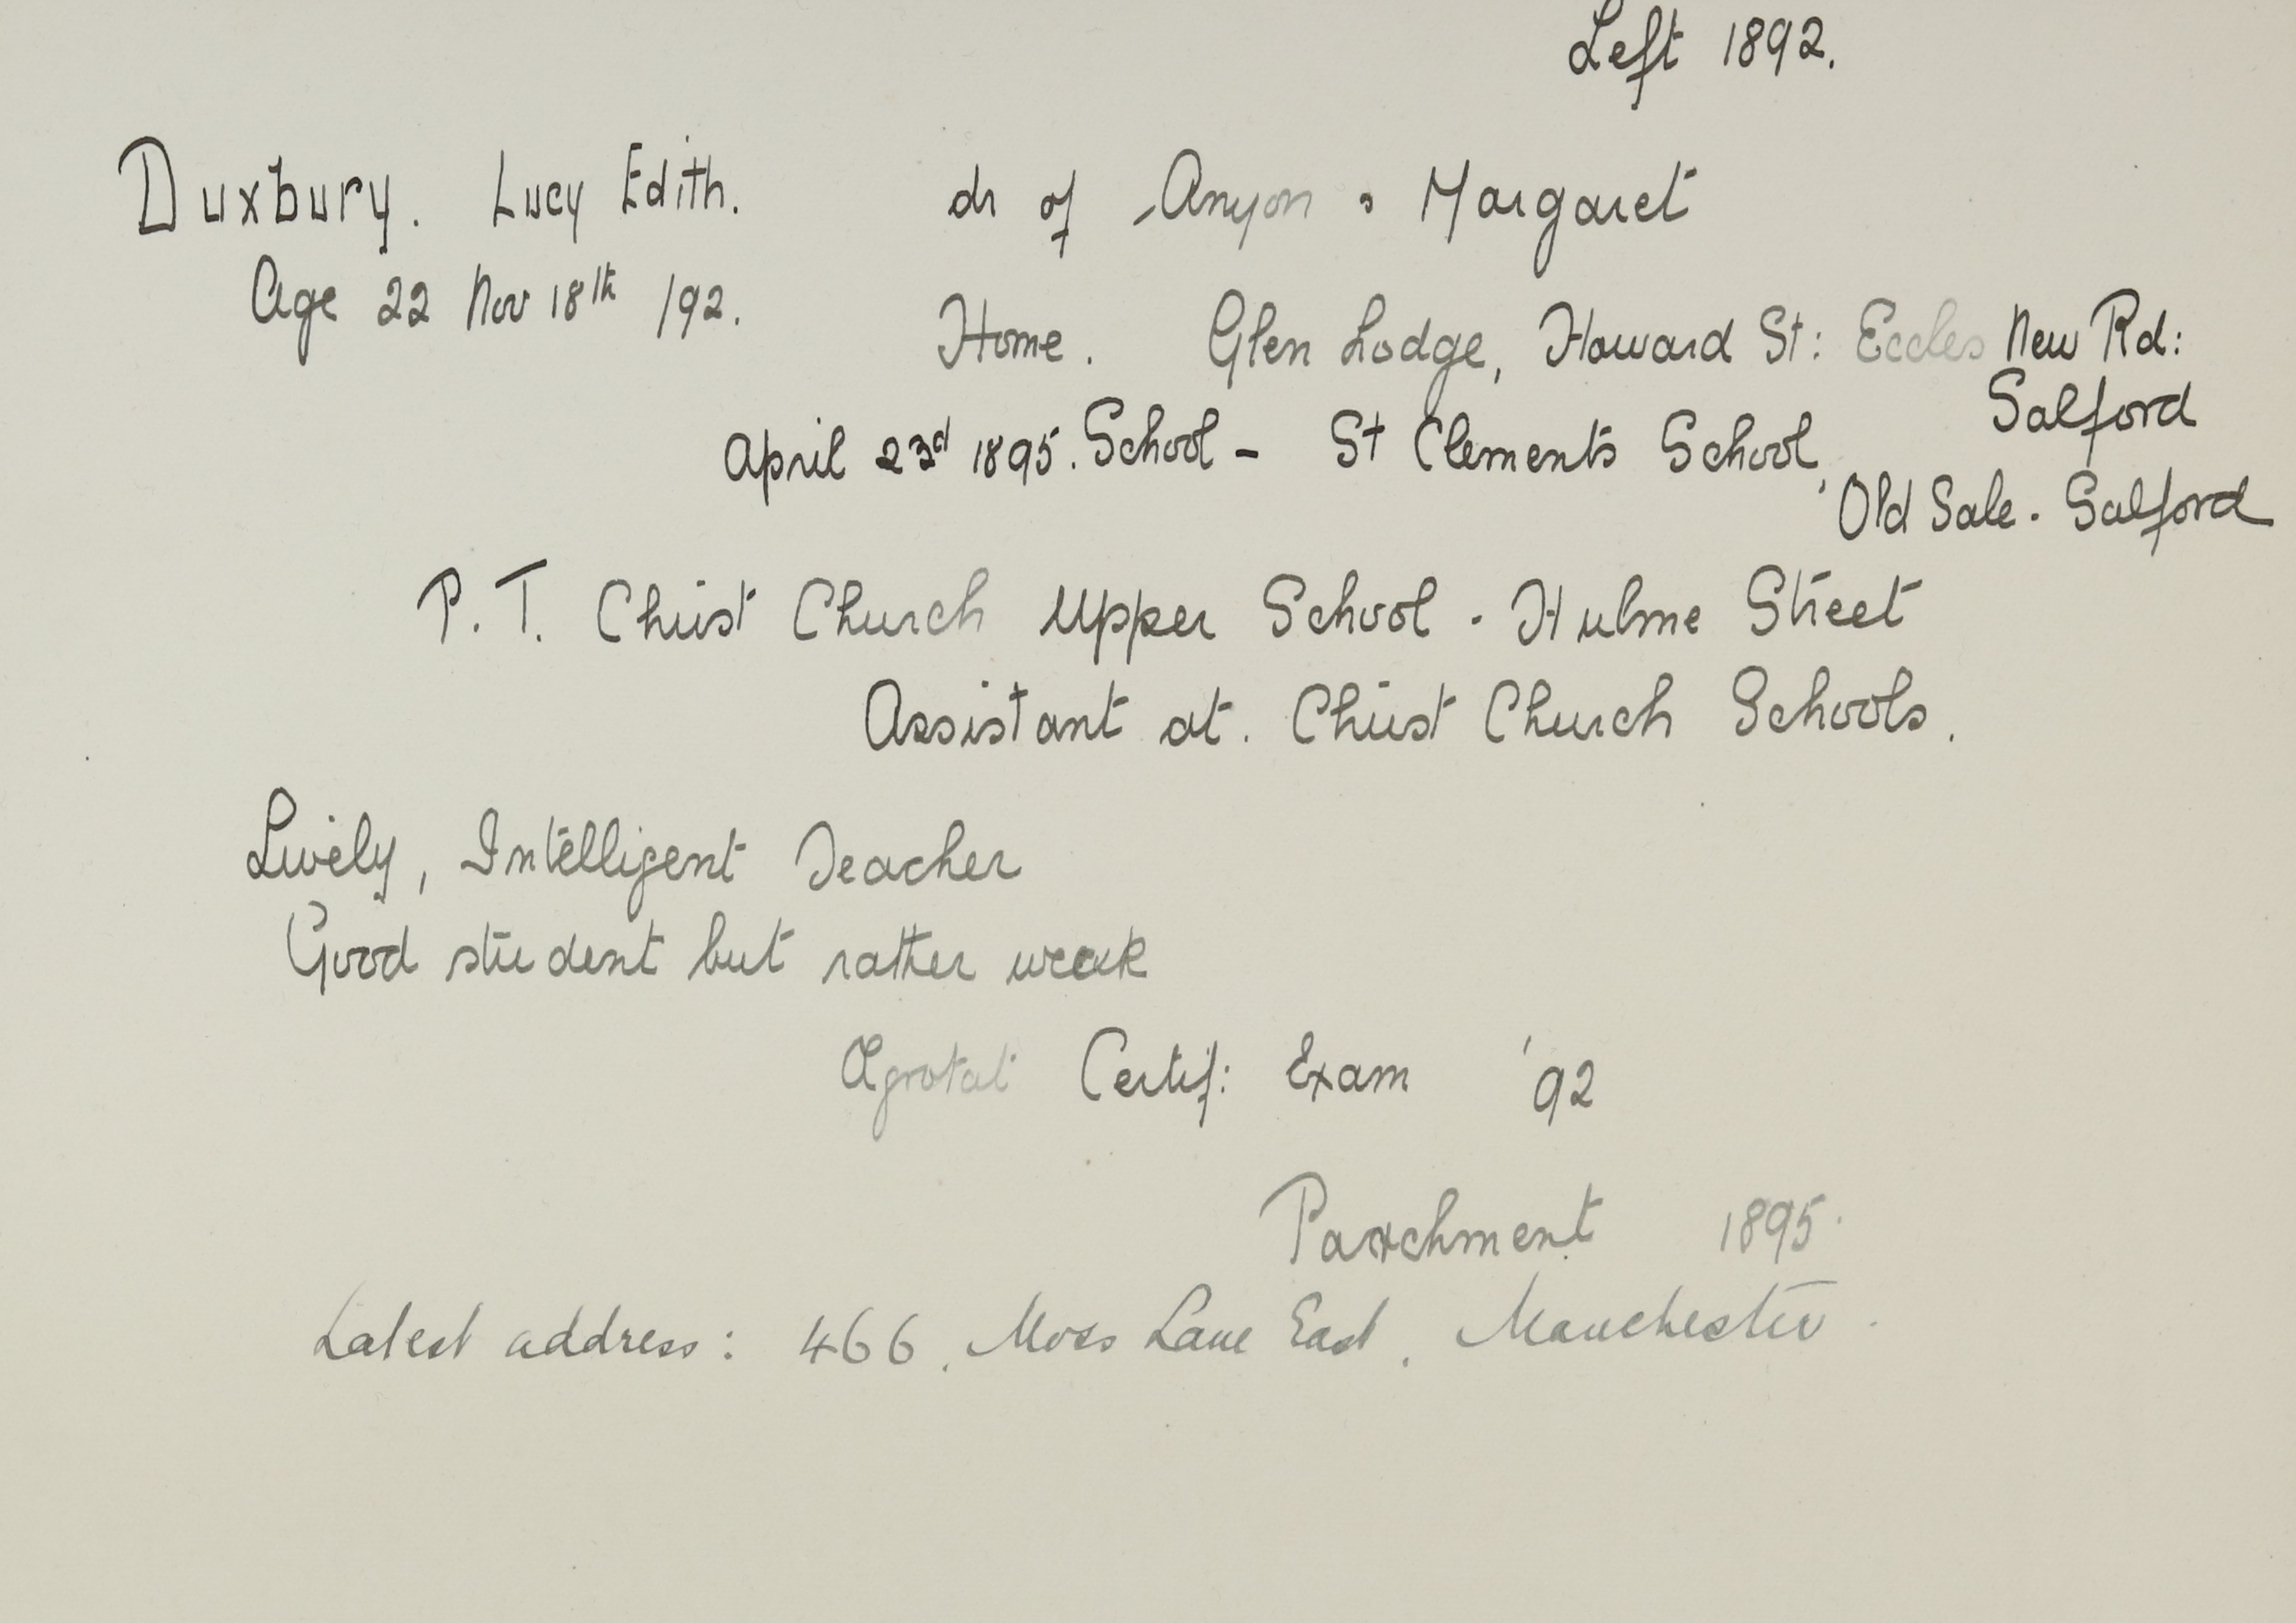 Left 1892.
Duxbury. Lucy Edith. dr of Anyon & Margaret
Age 22 Nov 18th /92. Home. Glen Lodge, Howard St: Eccles New Rd:
Salford
April 23rd 1895. School - St Clements School,
Old Sale. Salford
P. T. Christ Church Upper School. Hulme Street
Assistant at. Christ Church Schools.
Lively, Intelligent Teacher
Good student but rather weak
Ægrotat Certif: Exam '92
Parchment 1895.
Latest address: 466, Moss Lane East, Manchester.